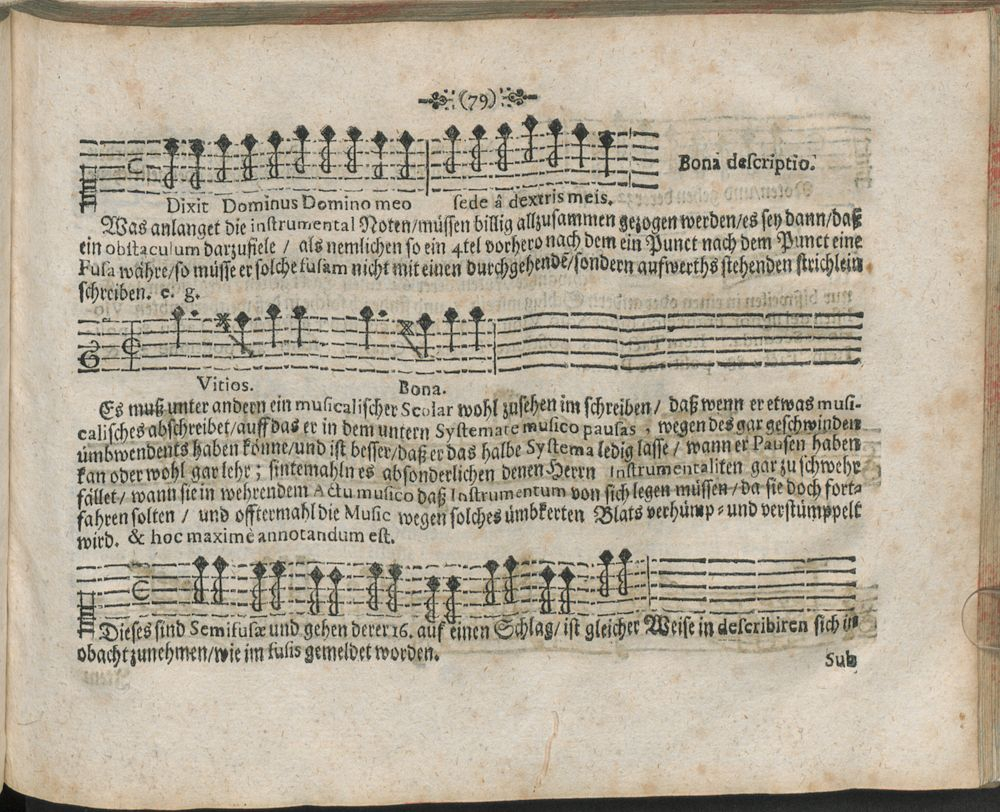 (79)
Bona descriptio.
Dixit Dominus Domino meo sede â dextris meis.
Was anlanget die instrumental Noten/müssen billig allzusammen gezogen werden/es sey dann/daß
ein obstaculum darzufiele / als nemlichen so ein 4tel vorhero nach dem ein Punct nach dem Punct eine
Fusa währe/so müsse er solche fusam nicht mit einen durchgehendē/sondern aufwerths stehenden strichlein
schreiben. e. g.
Vitios. Bona.
Es muß unter andern ein musicalischer Scolar wohl zusehen im schreiben / daß wenn er etwas musi-
calisches abschreibet/auff das er in dem untern Systemate musico pausas , wegen des gar geschwinden
ümbwendents haben könne/und ist besser/daß er das halbe Systema ledig lasse / wann er Pausen haben
kan oder wohl gar lehr ; sintemahln es absonderlichen denen Herrn Instrumentalisten gar zu schwehr
fället/ wann sie in wehrendem Actu musico daß Instrumentum von sich legen müssen/da sie doch fort-
fahren solten / und offtermahl die Music wegen solches ümbkerten Blats verhümp-und verstümppelt
wird. & hoc maximè annotandum est.
Dieses sind Semifusæ und gehen derer 16. auf einen Schlag/ist gleicher Weise in describiren sich in
obacht zunehmen/wie im fusis gemeldet worden.
Sub